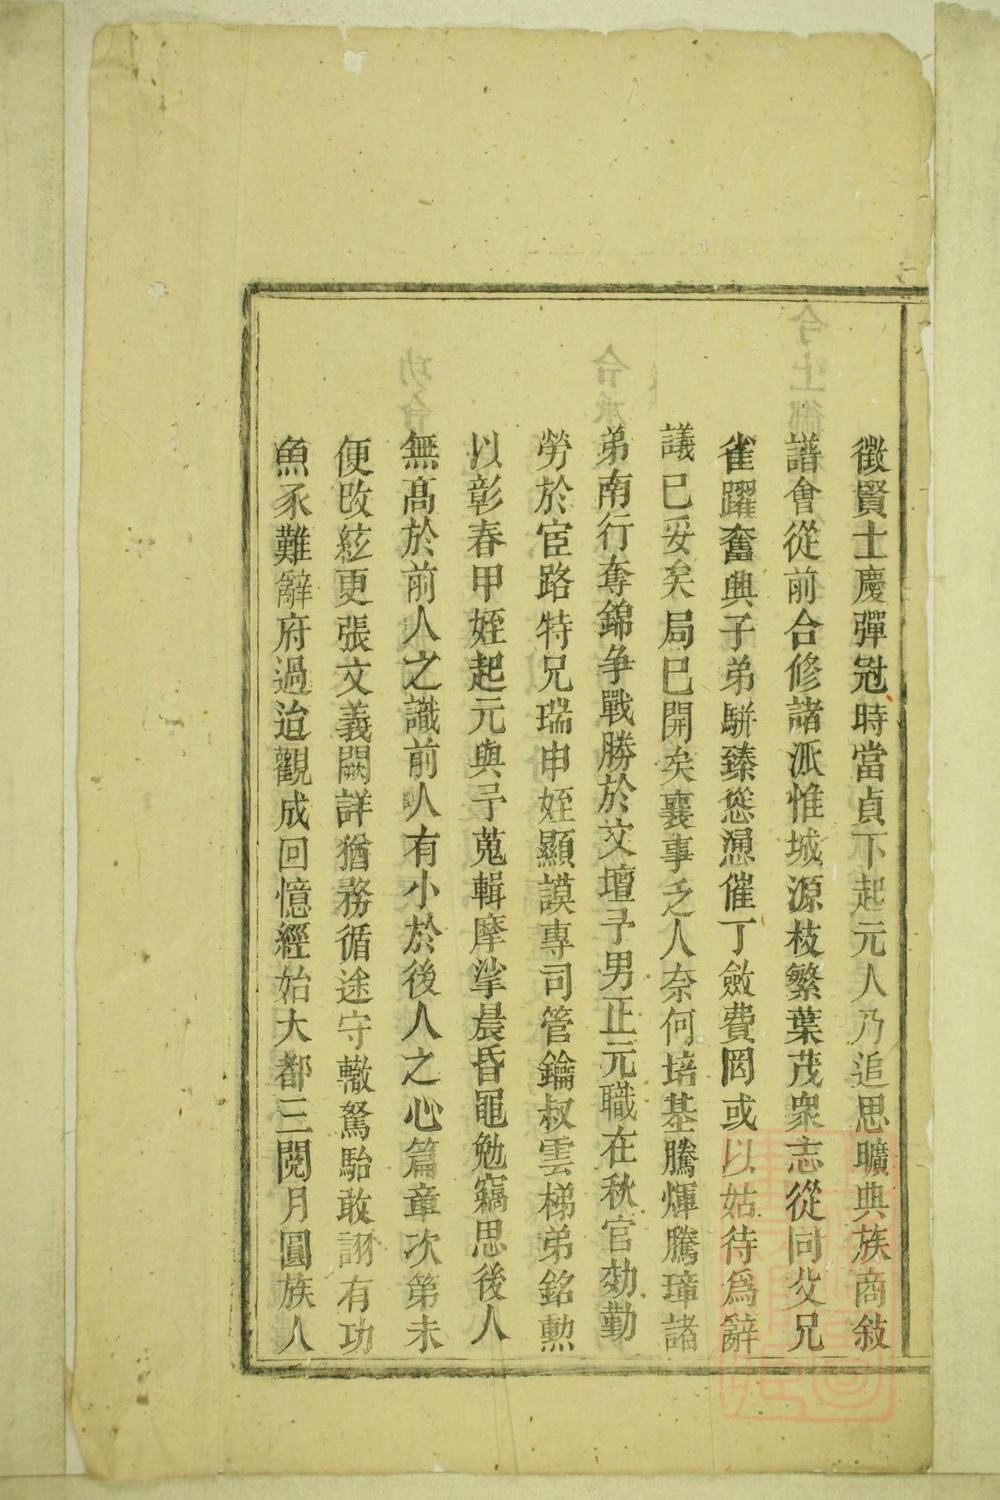 徵賢士慶彈冠時當貞下起元人乃追思曠典族商敍
譜會從前合修諸派惟城源枝繁葉茂衆志從同父兄
雀躍奮興子弟駢臻慫慂催丁斂費罔或以姑待爲辭
議已妥矣局已開矣襄事乏人奈何培基騰煇騰璋諸
弟南行奪錦争戰勝於文壇予男正元職在秋官効勤
勞於宦路特兄瑞申姪顯謨專司管鑰叔雲梯弟銘勲
以彰春甲姪起元與予蒐輯摩挲晨昏黽勉竊思後人
無高於前人之識前人有小於後人之心篇章次第未
便改絃更張文義闕詳猶務循途守轍駑駘敢詡有功
魚豕難辭府過迨觀成回憶經始大都三閱月圓族人